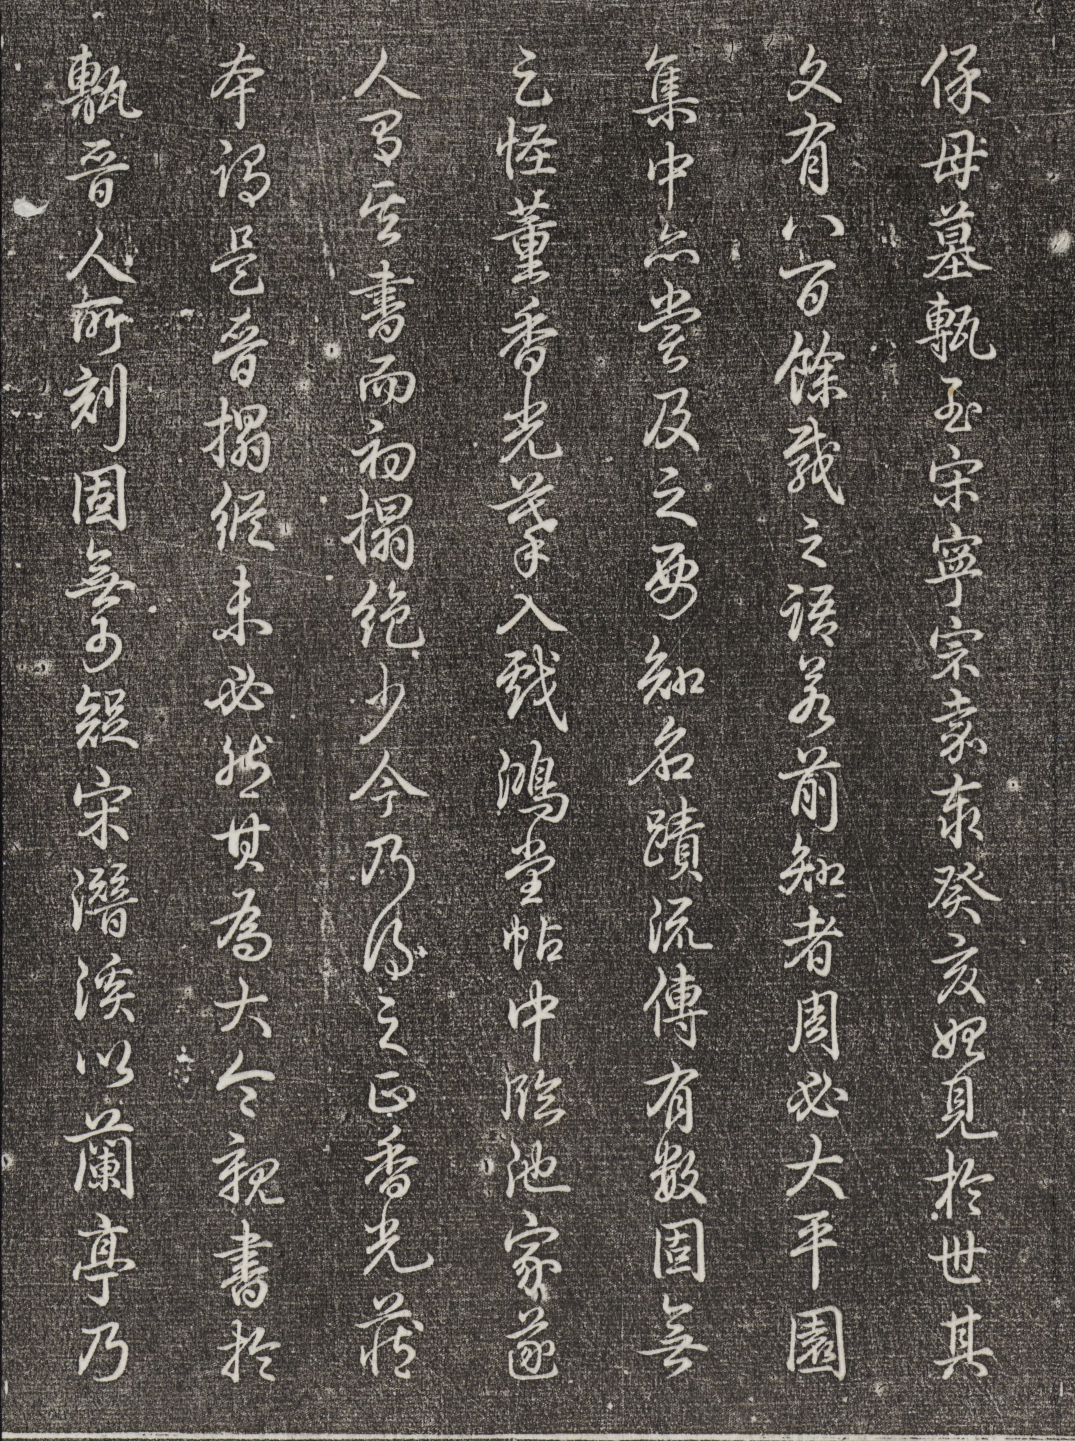 保母墓甎至宋寧宗嘉泰癸亥始見於世其
文有八百餘載之語若前知者周必大平園
集中亦嘗及之要知名蹟流傳有數固無
足怪董香光摹入戲鴻堂帖中臨池家遂
人習其書而初搨絕少今乃得之正香光藏
本謂是晉搨縱未必然其為大令親書於
甎晉人所刻固無可疑宋潛溪以蘭亭乃